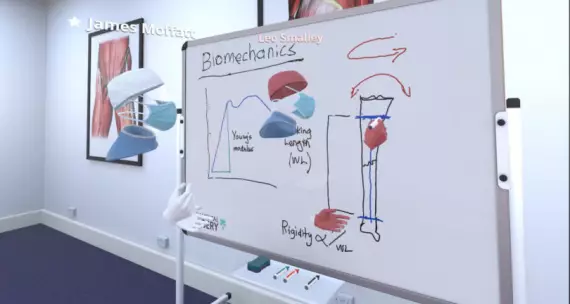 James Moffatt
Leo Smalley
Biomechanics
Young's
modulus
Length
(WL)
Rigidity ∝ /